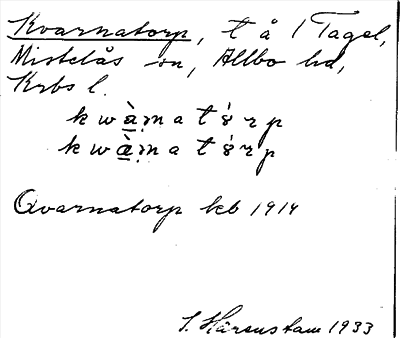 Kvarnatorp, t å 1 Tagel,
Mistelås sn, Allbo hd,
Krbs l.
k w à̱ ṃ a t ó r p
k w æ̱̀ ṃ a t ó r p
Qvarnatorp kb 1914
S. Härenstam 1933